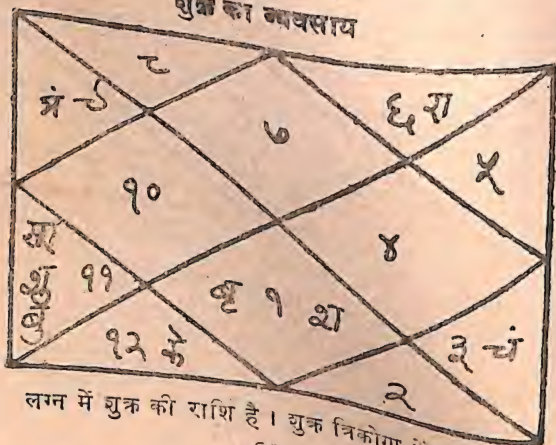 शुक्र का व्यवसाय
८
मं ९
७
६ रा
५
१०
४
सू
शु ११
बु
बृ १ श
३ चं
१२ के
२
लग्न में शुक्र की राशि है । शुक्र त्रिकोण